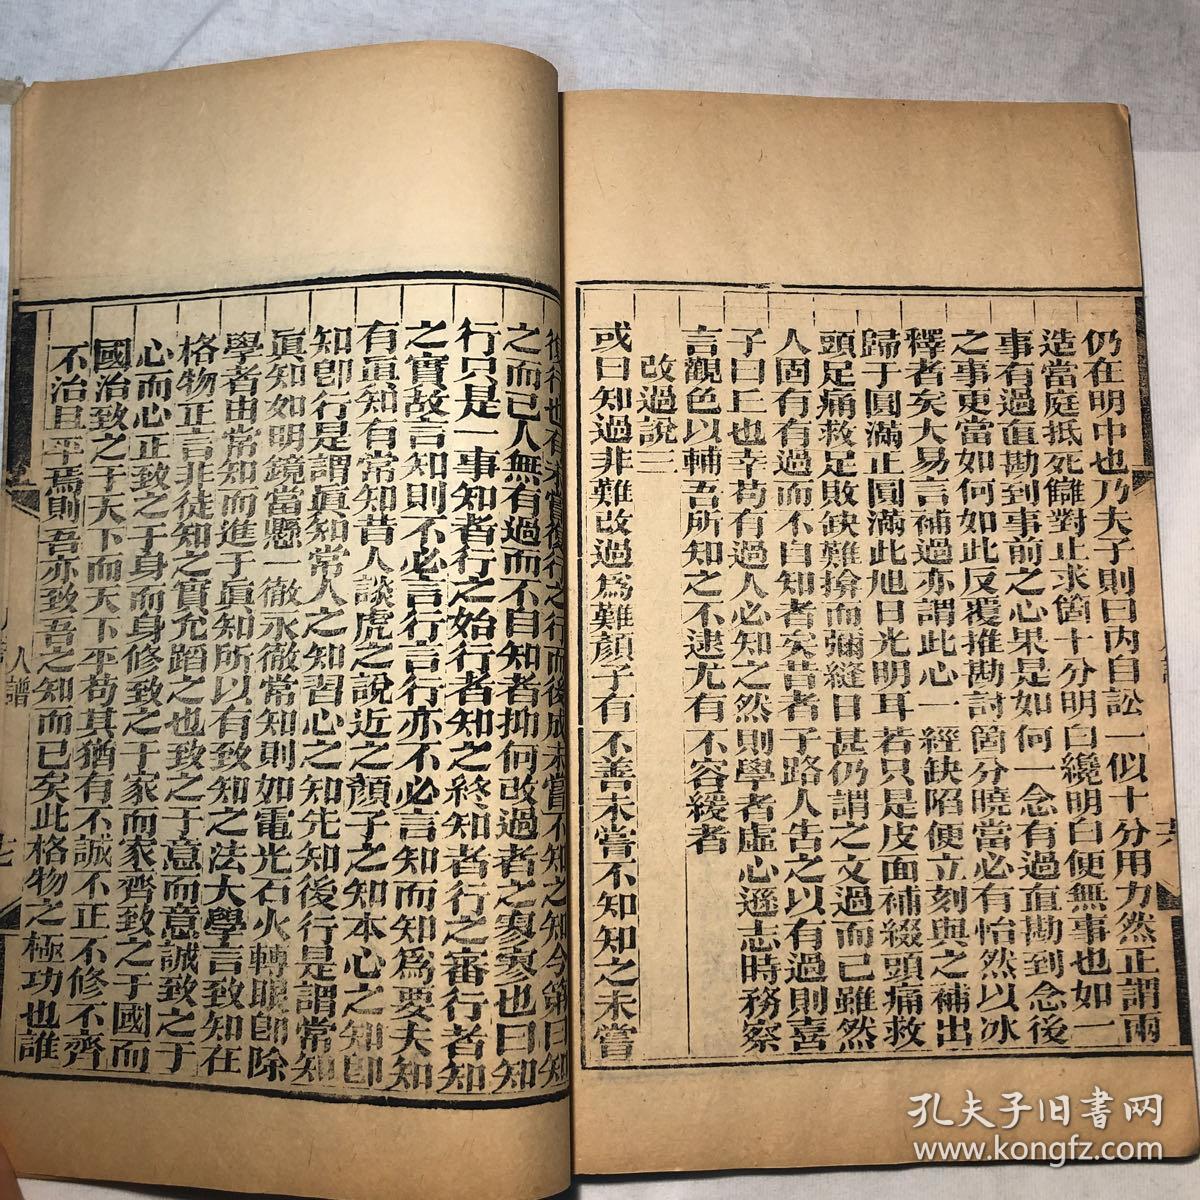 仍在明中也乃夫子則曰內自訟一似十分用力然正謂兩
造當庭抵死讎對止求箇十分明白纔明白便無事也如一
事有過直勘到事前之心果是如何一念有過直勘到念後
之事更當如何如此反覆推勘討箇分曉當必有怡然以冰
釋者矣大易言補過亦謂此心一經缺陷便立刻與之補出
歸于圓滿正圓滿此旭日光明耳若只是皮面補綴頭痛救
頭足痛救足敗缺難揜而彌縫日甚仍謂之文過而已雖然
人固有有過而不自知者矣昔者子路人告之以有過則喜
子曰丘也幸苟有過人必知之然則學者虛心遜志時務察
言觀色以輔吾所知之不逮尤有不容緩者
改過說三
或曰知過非難改過爲難顏子有不善未嘗不知知之未嘗
復行也有未嘗復行之行而後成未嘗不知之知今第曰知
之而已人無有過而不自知者抑何改過者之寥寥也曰知
行只是一事知者行之始行者知之終知者行之審行者知
之實故言知則不必言行言行亦不必言知而知爲要夫知
有眞知有常知昔人談虎之說近之顏子之知本心之知卽
知卽行是謂眞知常人之知習心之知先知後行是謂常知
眞知如明鏡當懸一徹永徹常知則如電光石火轉眼卽除
學者由常知而進于眞知所以有致知之法大學言致知在
格物正言非徒知之實允蹈之也致之于意而意誠致之于
心而心正致之于身而身修致之于家而家齊致之于國而
國治致之于天下而天下平苟其猶有不誠不正不修不齊
不治且平焉則吾亦致吾之知而已矣此格物之極功也誰
人譜
七
孔夫子旧書网
www.kongfz.com